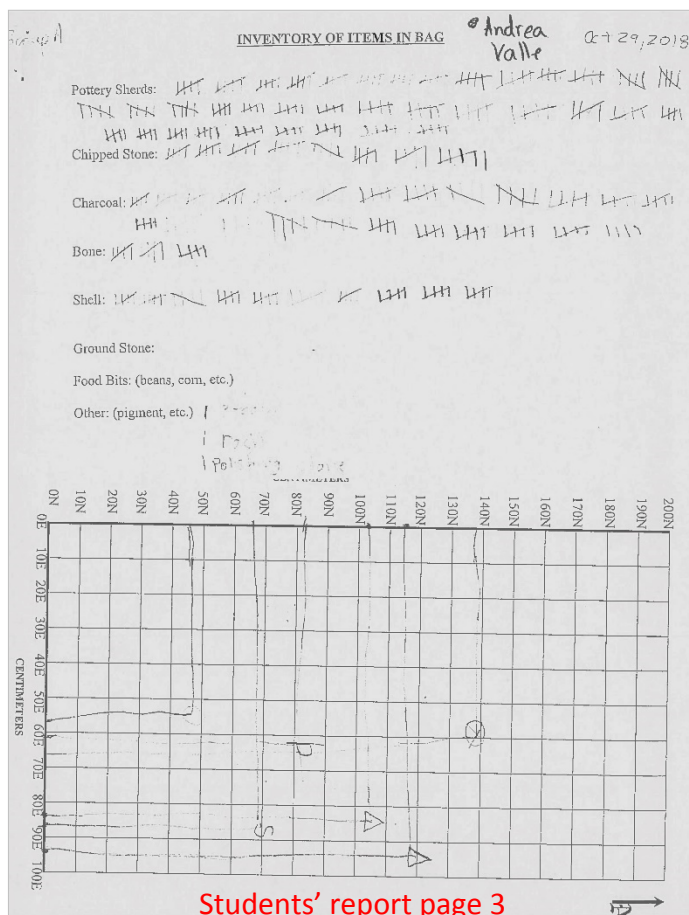 INVENTORY OF ITEMS IN BAG
Andrea
Valle
Oct 29, 2018
Pottery Sherds:
Chipped Stone:
Charcoal:
Bone:
Shell:
Ground Stone:
Food Bits: (beans, corn, etc.)
Other: (pigment, etc.) 1
1 rock
1 Polishing stone
CENTIMETERS
0N 10N 20N 30N 40N 50N 60N 70N 80N 90N 100N 110N 120N 130N 140N 150N 160N 170N 180N 190N 200N
0E
10E
20E
30E
40E
50E
60E
70E
80E
90E
100E
CENTIMETERS
P
S
Students' report page 3